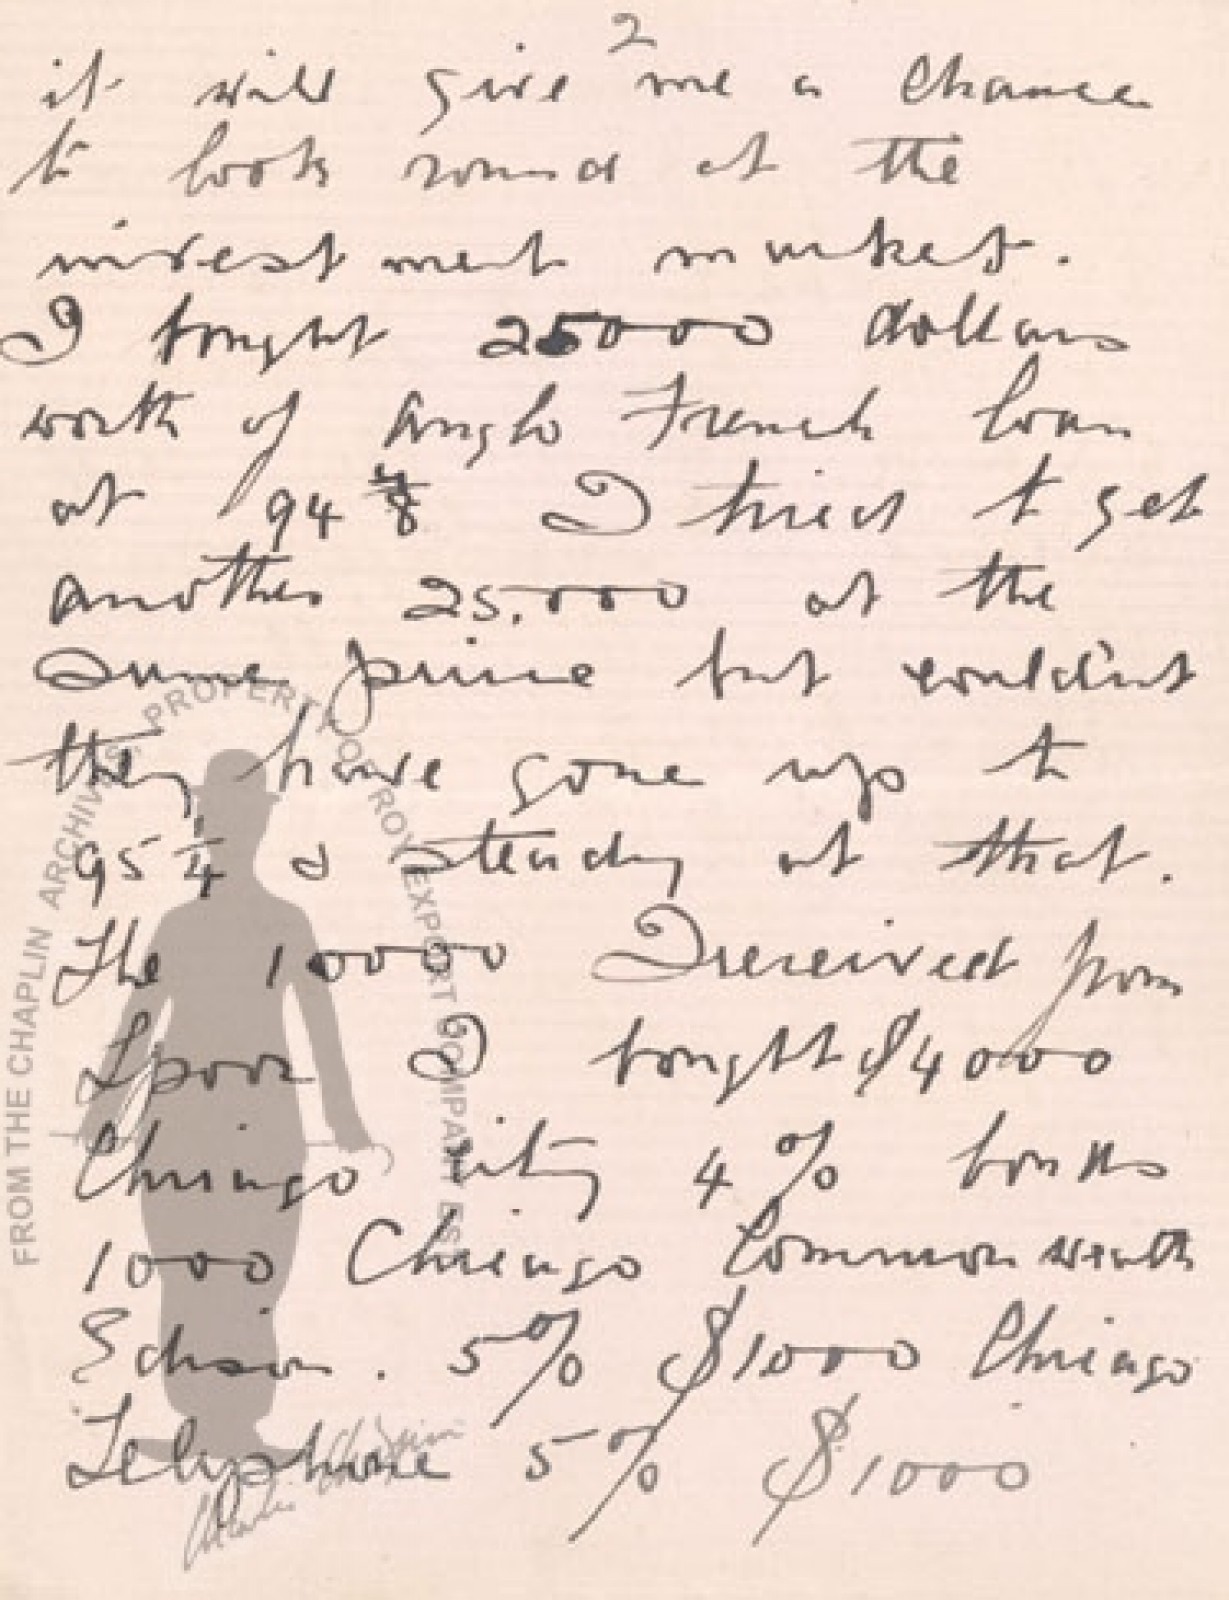 2
it will give me a chance
to look round at the
investment market.
I bought 25000 dollars
worth of Anglo French loan
at 94 I tried to get
another 25.000 at the
same price but couldn't
they have gone up to
95 1/4 & steady at that.
The 10000 I received from
Spoor I bought $4000
Chicago city 4% bonds
1000 Chicago Commonwealth
Edison. 5% $1000 Chicago
Telephone 5% $1000
FROM THE CHAPLIN ARCHIVES. PROPERTY OF ROY EXPORT COMPANY EST
Charlie Chaplin